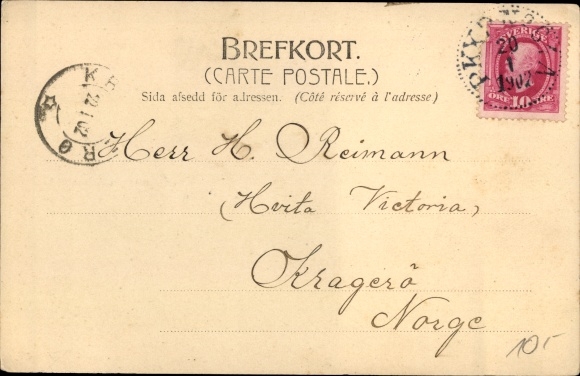 BREFKORT.
(CARTE POSTALE.)
Sida afsedd för adressen. (Côté réservé à l'adresse)
SVERIGE
20
1
1902
ÖRE 10 ÖRE
22 1 02
Herr H. Reimann
(Hvita Victoria)
Kragerö
Norge
10-